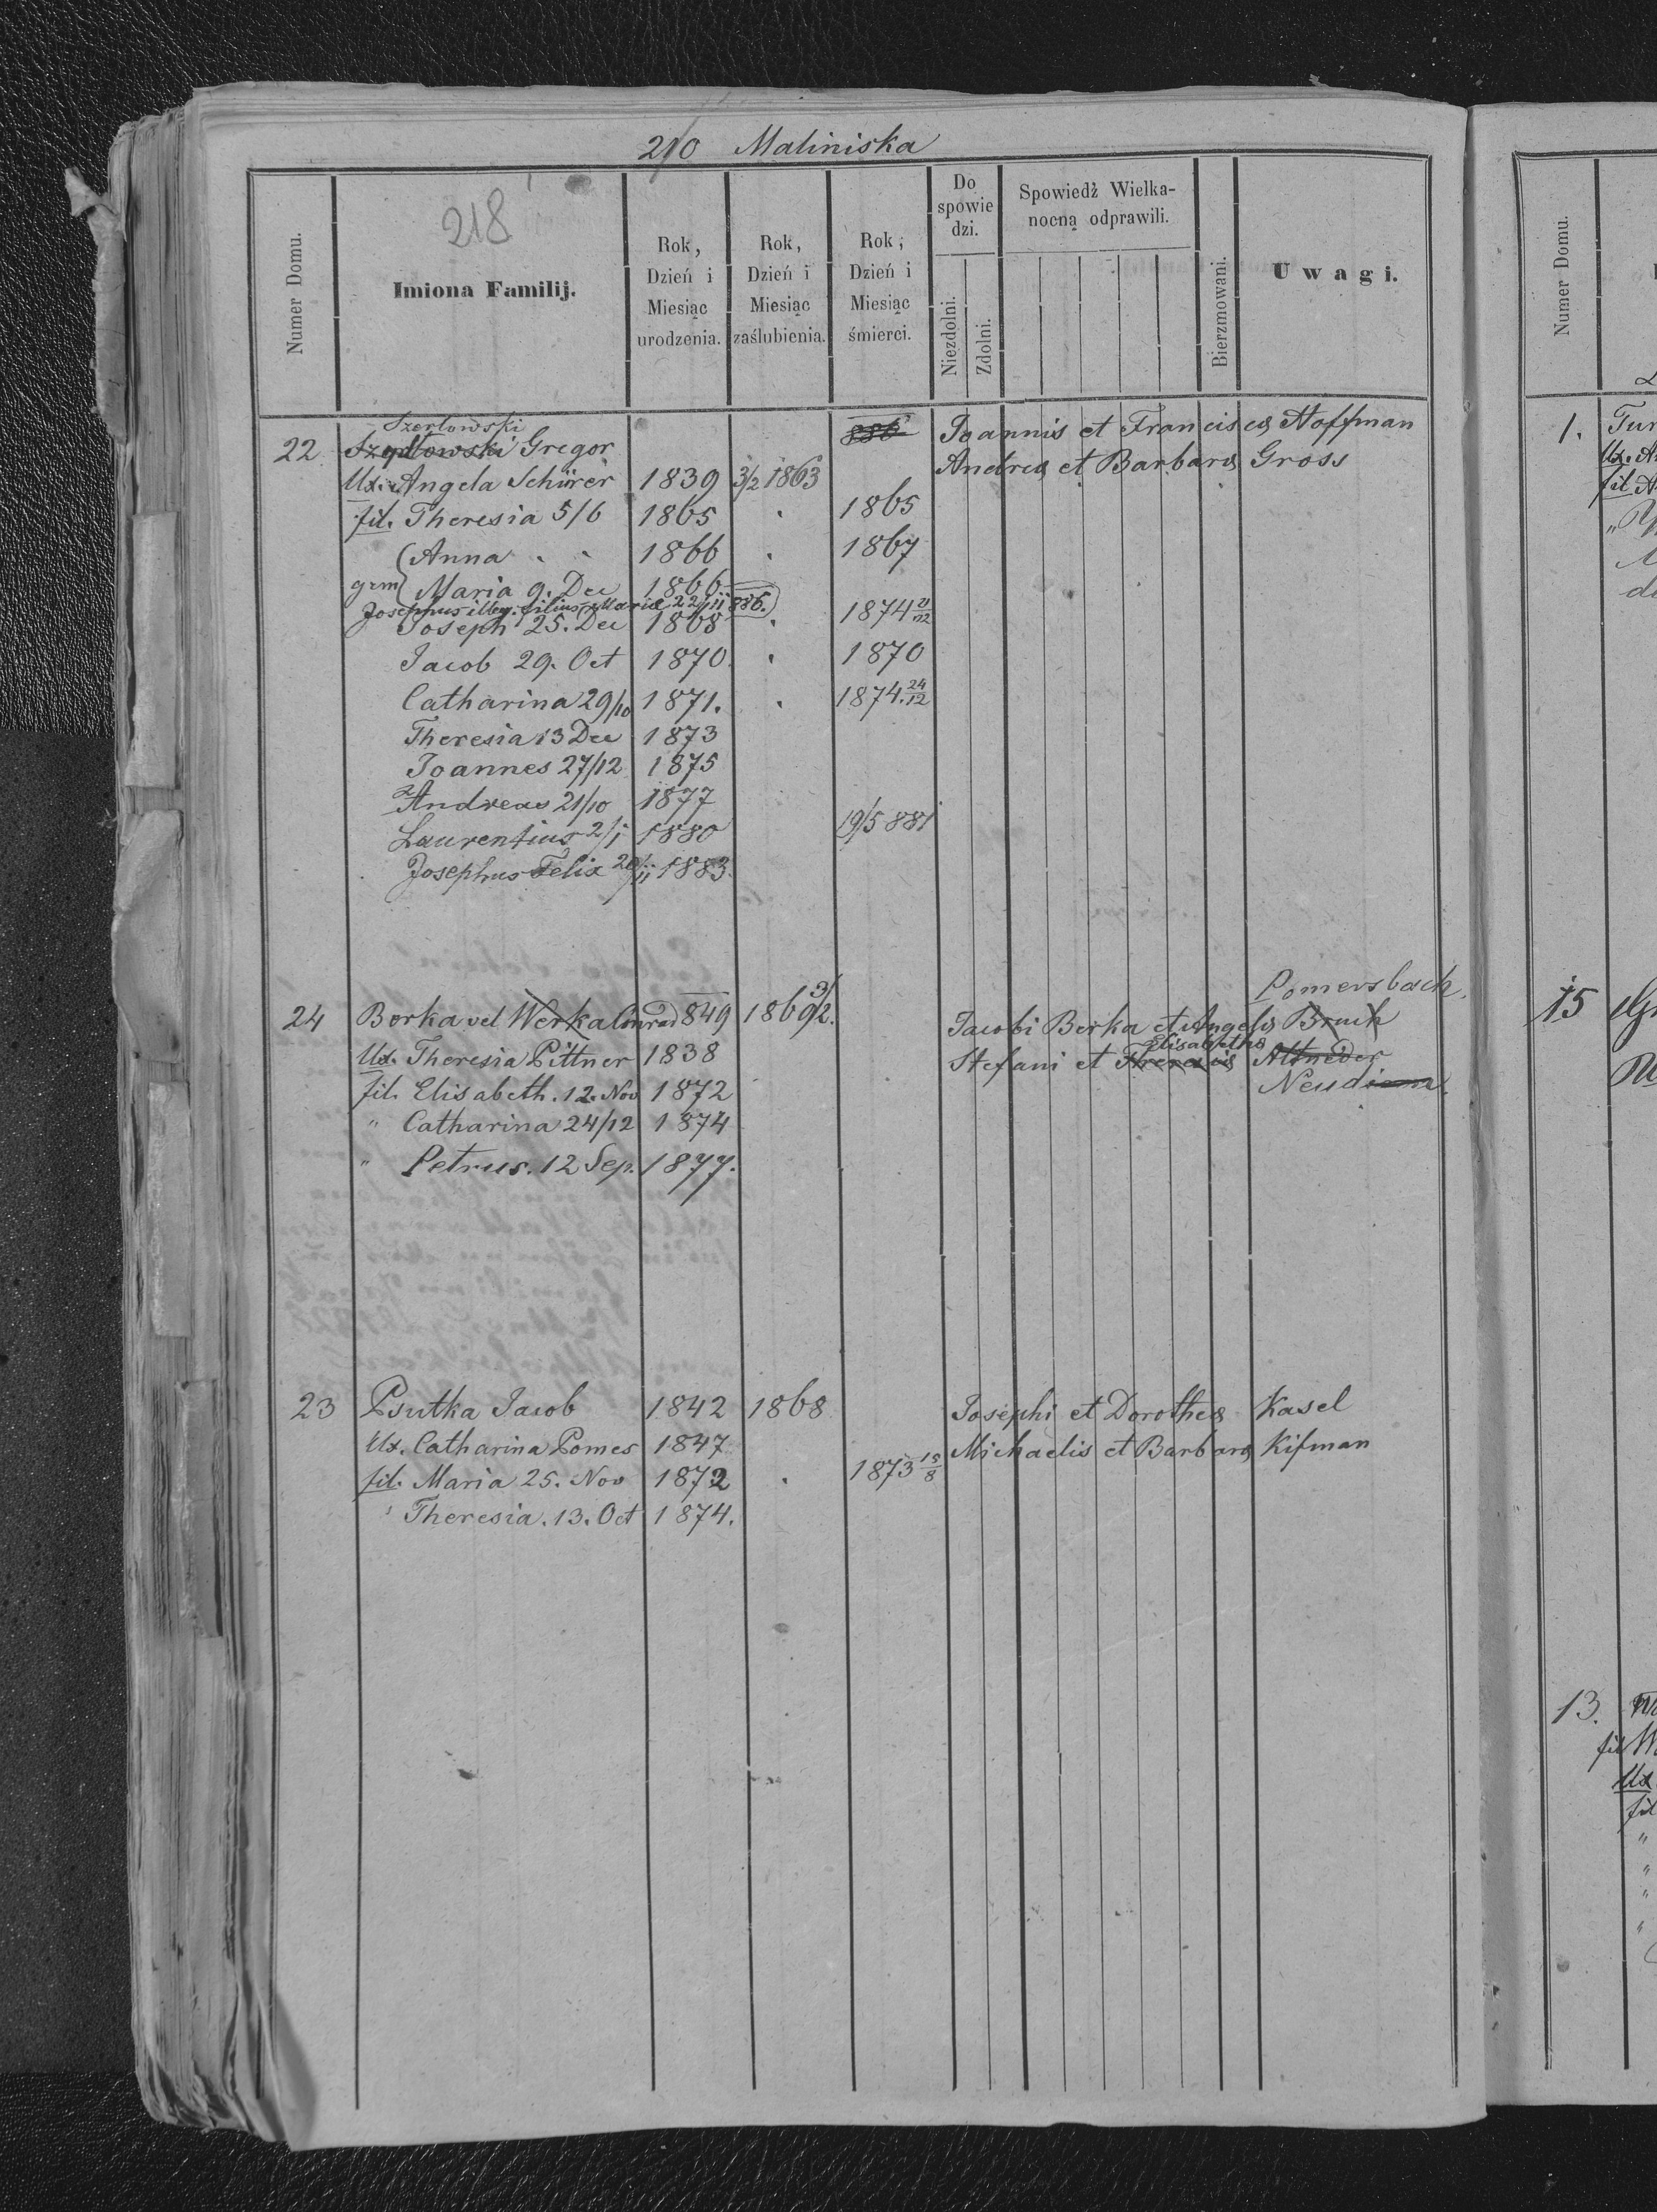 210 Maliniska
218
Numer Domu.
Imiona Familij.
Rok, Dzień i Miesiąc urodzenia.
Rok, Dzień i Miesiąc zaślubienia.
Rok, Dzień i Miesiąc śmierci.
Do spowie dzi.
Niezdolni.
Zdolni.
Spowiedź Wielka-
nocną odprawili.
Bierzmowani.
Uwagi.
Szerłowski
22 Gregor 886 Joannis et Franciscæ Hoffman
Ux. Angela Schürer 1839 3/2 1863 Andreæ et Barbaræ Gross
fil. Theresia 5/6 1865 1865
Anna 1866 1867
gem Maria 9. Dec 1866
Josephus illeg. filius Mariæ 22/11 886.
Joseph 25. Dec 1868 1874 21/12
Jacob 29. Oct 1870 1870
Catharina 29/10 1871. 1874. 24/12
Theresia 13 Dec 1873
Joannes 27/12 1875
Andreas 21/10 1877
Laurentius 2/1 1880 19/5 881
Josephus Felix 20/11 1883.
Pomersbach
24 Berka vel Werka Conrad 849 1869 3/2. Jacobi Berka et Angelæ Bruch
Elisabethæ
Ux. Theresia Pittner 1838 Stefani et Theresiæ Altneder
fil. Elisabeth. 12. Nov 1872
" Catharina 24/12 1874
" Petrus. 12 Sep. 1877.
23 Psutka Jacob 1842 1868 Josephi et Dorotheæ Kasel
Ux. Catharina Pomes 1847 Michaelis et Barbaræ Kifman
fil. Maria 25. Nov 1872 1873 15/8
Theresia. 13. Oct 1874.
Numer Domu.
1.
Ux.
fil
15
13.
fil
Ux
fil